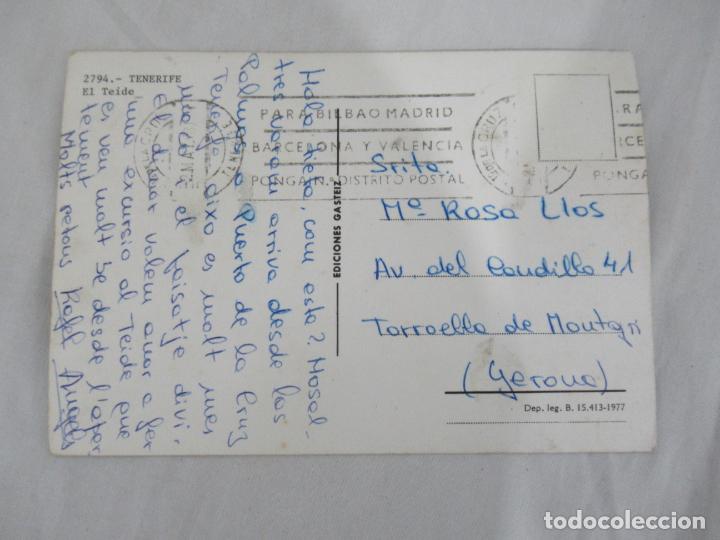 2794.- TENERIFE
El Teide
Hola nena, com esta? Nosal-
tres varem arriva desde las
Palmas a Puerto de la Cruz
Tenerife aixo es molt mes
el paisatje divi-
El dimar volem anar a fer
una excursio al Teide que
es veu molt be desde l'apar
tement
Molts petons Rafel Angels
EDICIONES GASTEIZ
PARA BILBAO MADRID
BARCELONA Y VALENCIA
PONGA N.º DISTRITO POSTAL
PARA
BARCE
PONGA N
Srita.
Mª Rosa Llos
Av. del Caudillo 41
Torroella de Montgri
(Gerona)
Dep. leg. B. 15.413-1977
todocoleccion.net